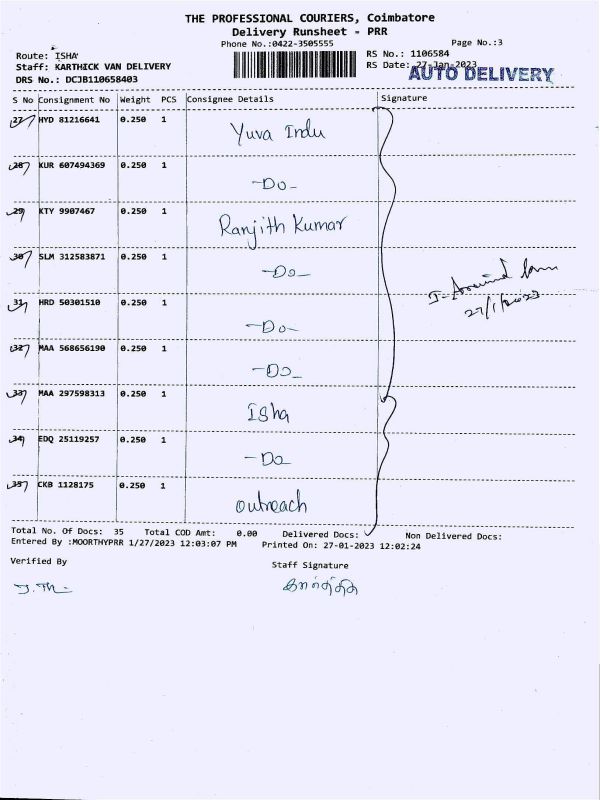 THE PROFESSIONAL COURIERS, Coimbatore
Delivery Runsheet - PRR
Phone No.:0422-3505555
Page No.:3
Route: ISHA
RS No.: 1106584
Staff: KARTHICK VAN DELIVERY
RS Date: 27-Jan-2023
DRS No.: DCJB110658403
AUTO DELIVERY
S No Consignment No Weight PCS Consignee Details Signature
27 HYD 81216641 0.250 1 Yuva Indu
28 KUR 607494369 0.250 1 -Do-
29 KTY 9907467 0.250 1 Ranjith Kumar
30 SLM 312583871 0.250 1 -Do-
31 HRD 50301510 0.250 1 -Do-
32 MAA 568656190 0.250 1 -Do-
33 MAA 297598313 0.250 1 Isha
34 EDQ 25119257 0.250 1 -Do
35 CKB 1128175 0.250 1 outreach
27/1/2023
Total No. Of Docs: 35 Total COD Amt: 0.00 Delivered Docs: Non Delivered Docs:
Entered By :MOORTHYPRR 1/27/2023 12:03:07 PM Printed On: 27-01-2023 12:02:24
Verified By Staff Signature
கார்த்திக்